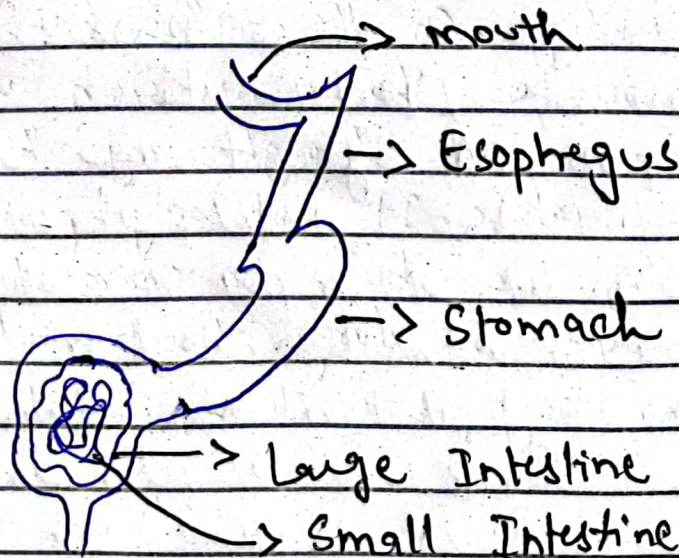 mouth
Esophegus
Stomach
Large Intestine
Small Intestine